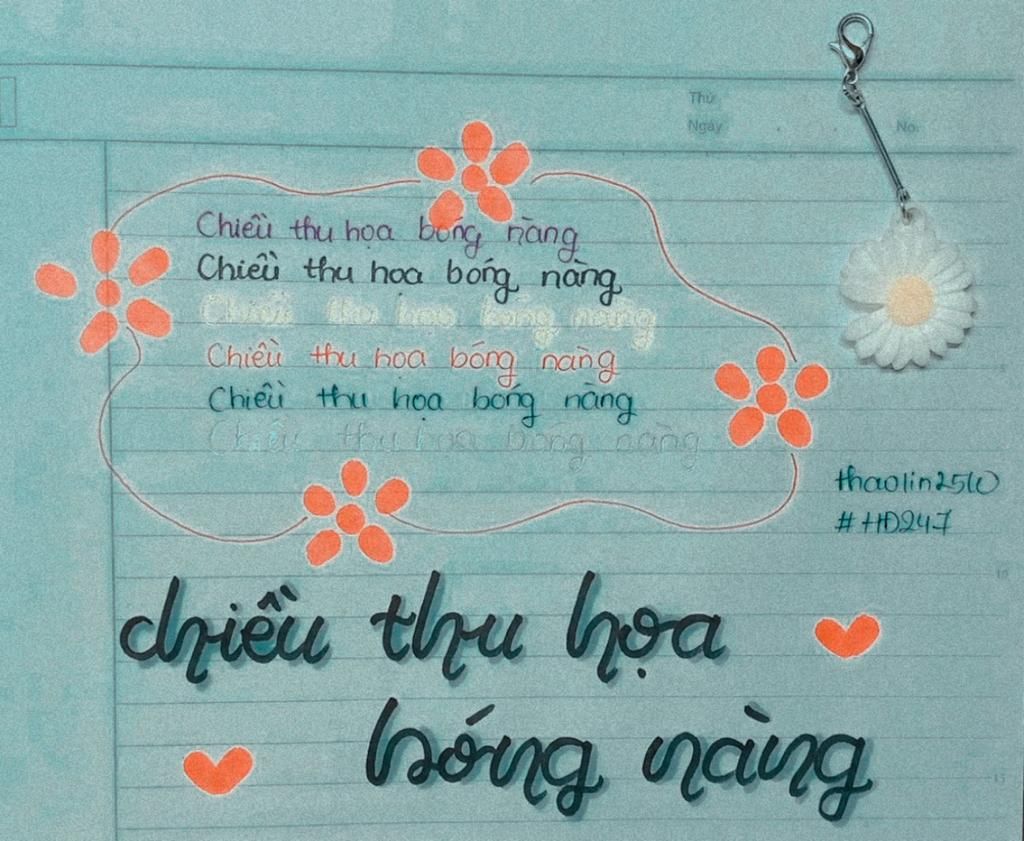 Thứ
Ngày No.
Chiều thu họa bóng nàng
Chiều thu họa bóng nàng
Chiều thu họa bóng nàng
Chiều thu họa bóng nàng
Chiều thu họa bóng nàng
Chiều thu họa bóng nàng
thaolin2510
#HĐ247
10
chiều thu họa
bóng nàng
15